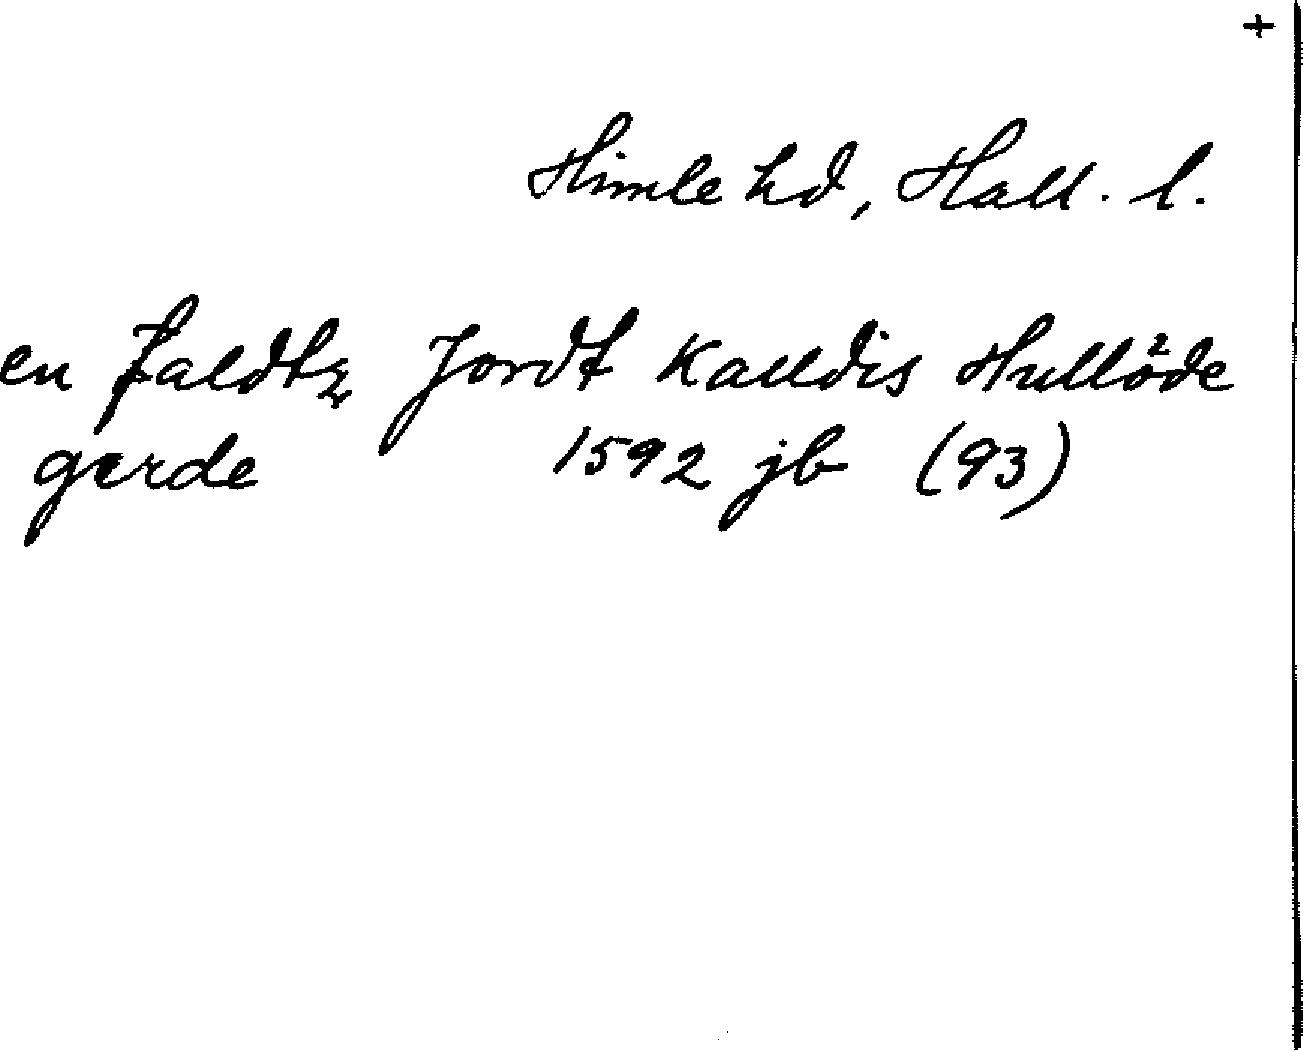 +
Himle hd, Hall. l.
en faldtz Jordt Kalldis Hullöde
gerde 1592 jb (93)